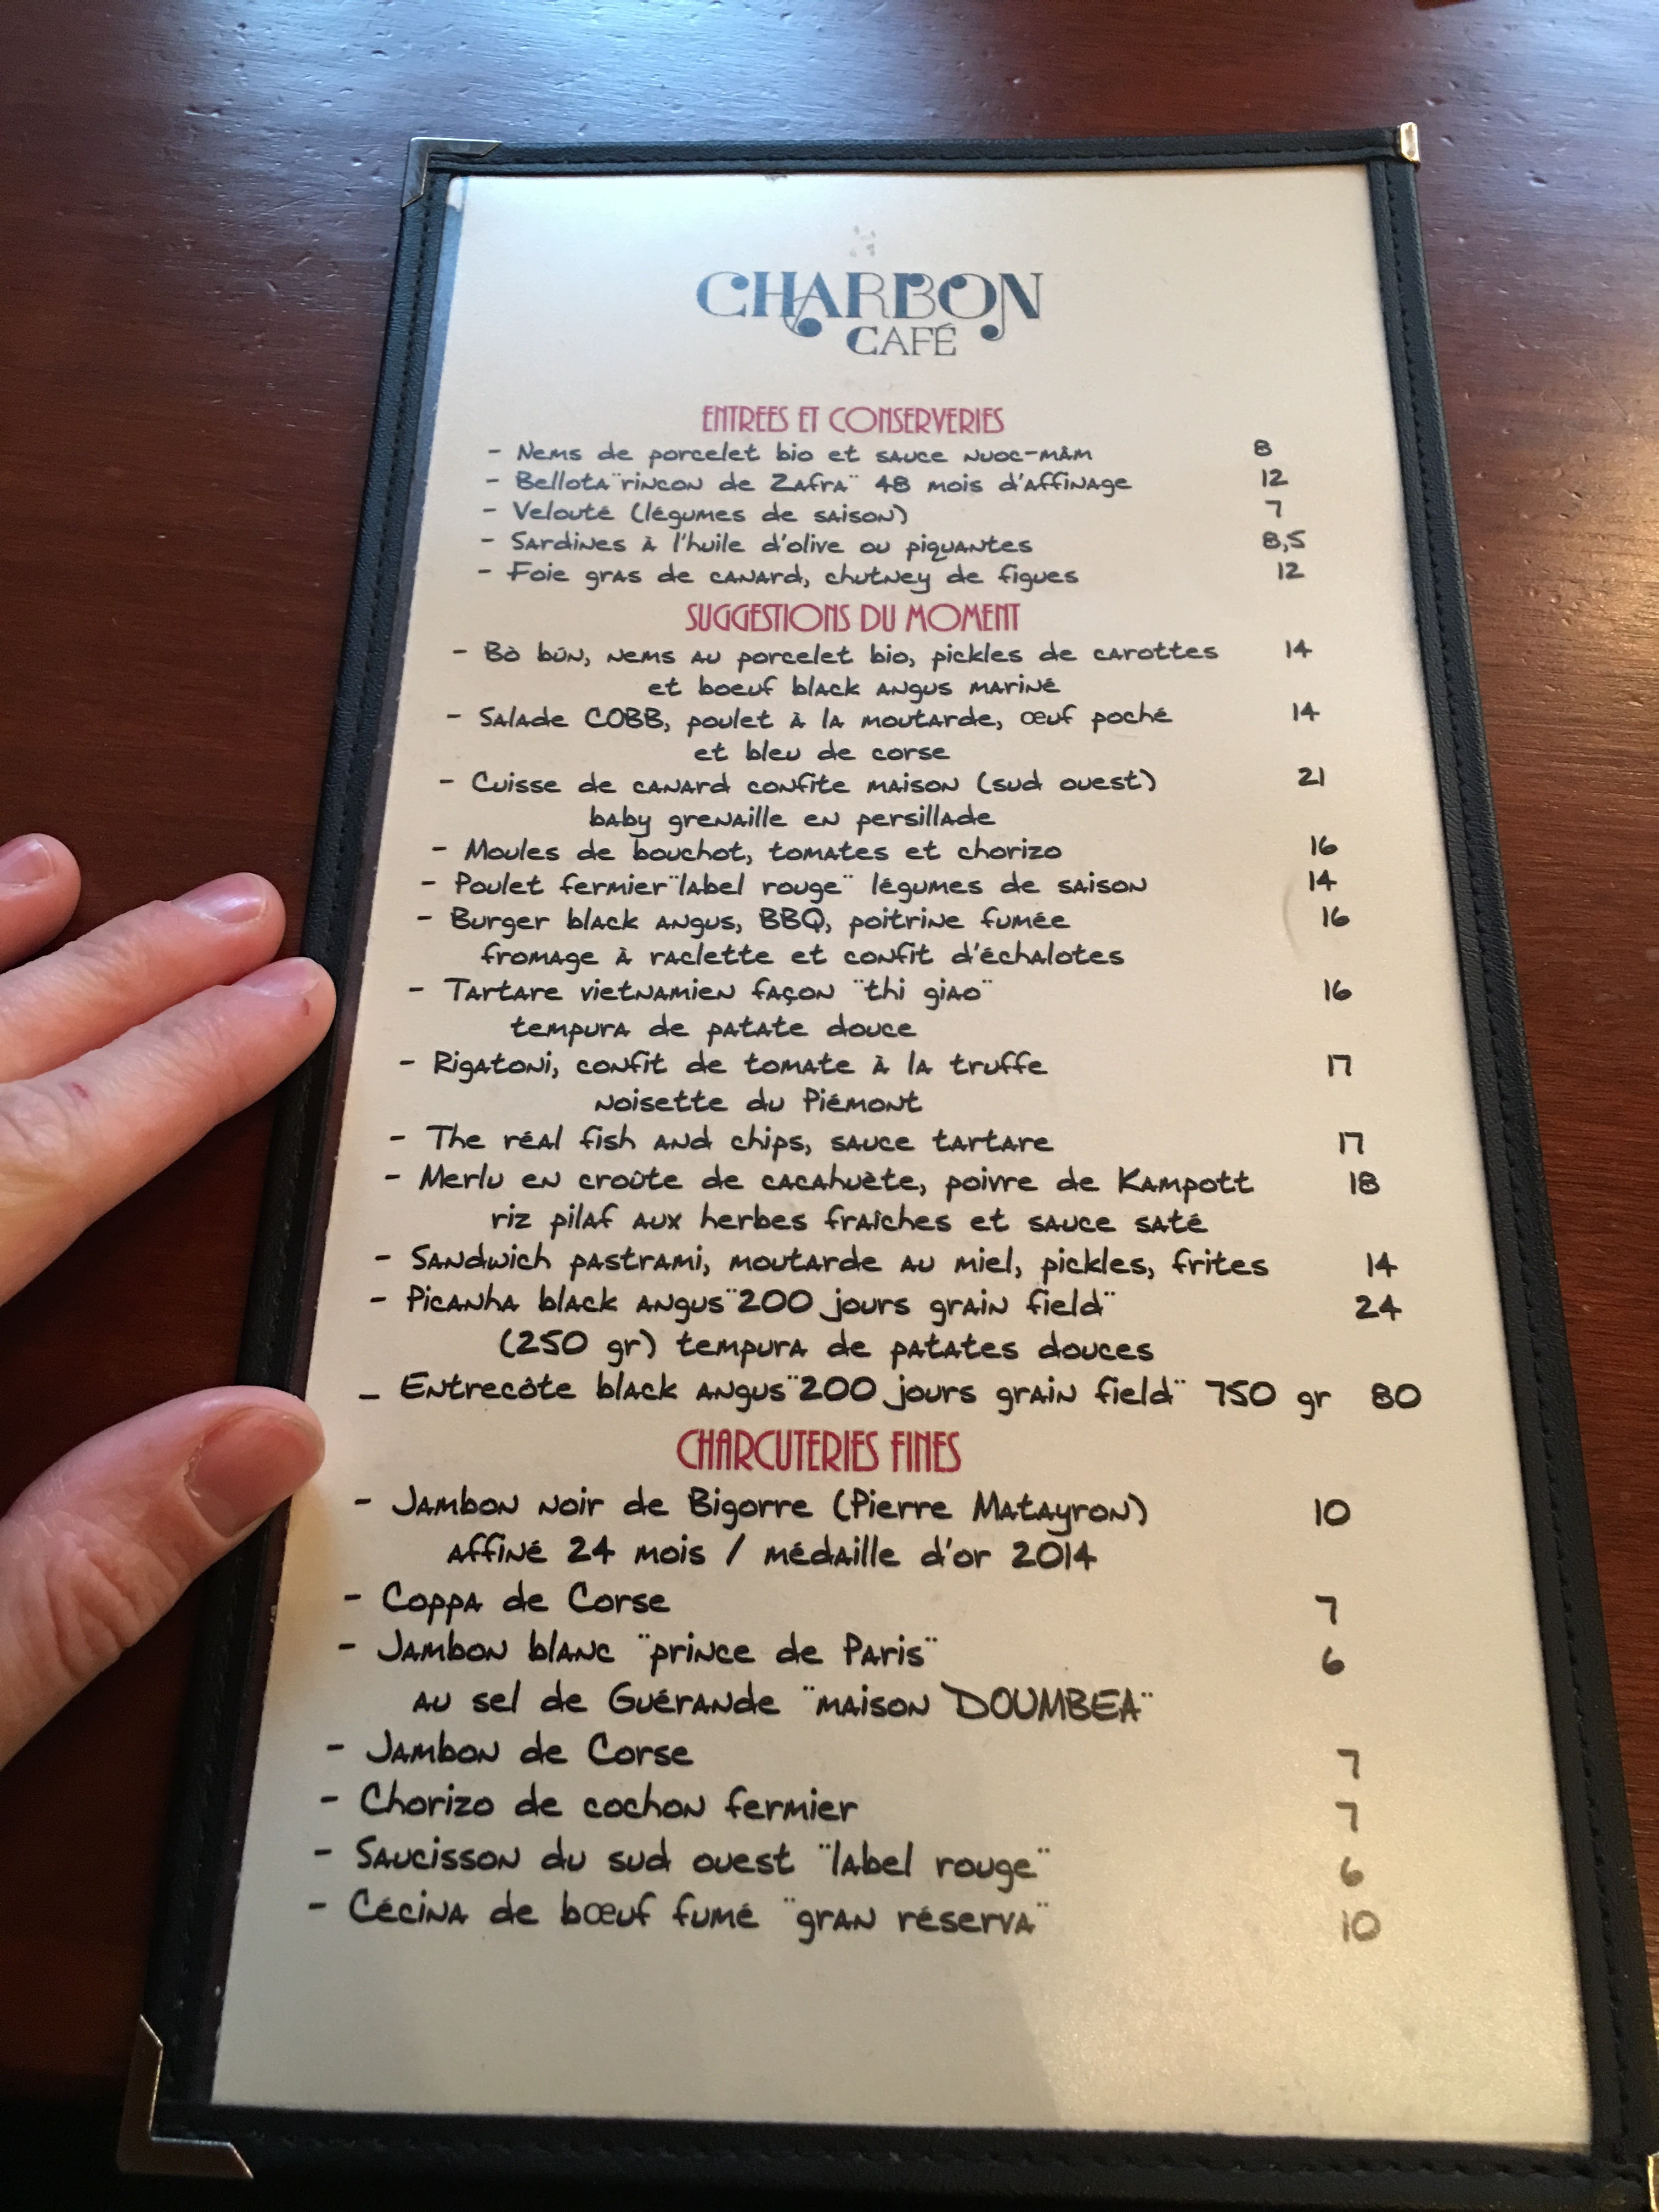 CHARBON
CAFÉ
ENTREES ET CONSERVERIES
- Nems de porcelet bio et sauce nuoc-mâm 8
- Bellota "rincon de Zafra" 48 mois d'affinage 12
- Velouté (légumes de saison) 7
- Sardines à l'huile d'olive ou piquantes 8,5
- Foie gras de canard, chutney de figues 12
SUGGESTIONS DU MOMENT
- Bò bún, nems au porcelet bio, pickles de carottes 14
et boeuf black angus mariné
- Salade COBB, poulet à la moutarde, œuf poché 14
et bleu de corse
- Cuisse de canard confite maison (sud ouest) 21
baby grenaille en persillade
- Moules de bouchot, tomates et chorizo 16
- Poulet fermier "label rouge" légumes de saison 14
- Burger black angus, BBQ, poitrine fumée 16
fromage à raclette et confit d'échalotes
- Tartare vietnamien façon "thi giao" 16
tempura de patate douce
- Rigatoni, confit de tomate à la truffe 17
noisette du Piémont
- The réal fish and chips, sauce tartare 17
- Merlu en croûte de cacahuète, poivre de Kampott 18
riz pilaf aux herbes fraîches et sauce saté
- Sandwich pastrami, moutarde au miel, pickles, frites 14
- Picanha black angus "200 jours grain field" 24
(250 gr) tempura de patates douces
_ Entrecôte black angus "200 jours grain field" 750 gr 80
CHARCUTERIES FINES
- Jambon noir de Bigorre (Pierre Matayron) 10
affiné 24 mois / médaille d'or 2014
- Coppa de Corse 7
- Jambon blanc "prince de Paris" 6
au sel de Guérande "maison DOUMBEA"
- Jambon de Corse 7
- Chorizo de cochon fermier 7
- Saucisson du sud ouest "label rouge" 6
- Cécina de bœuf fumé "gran réserva" 10